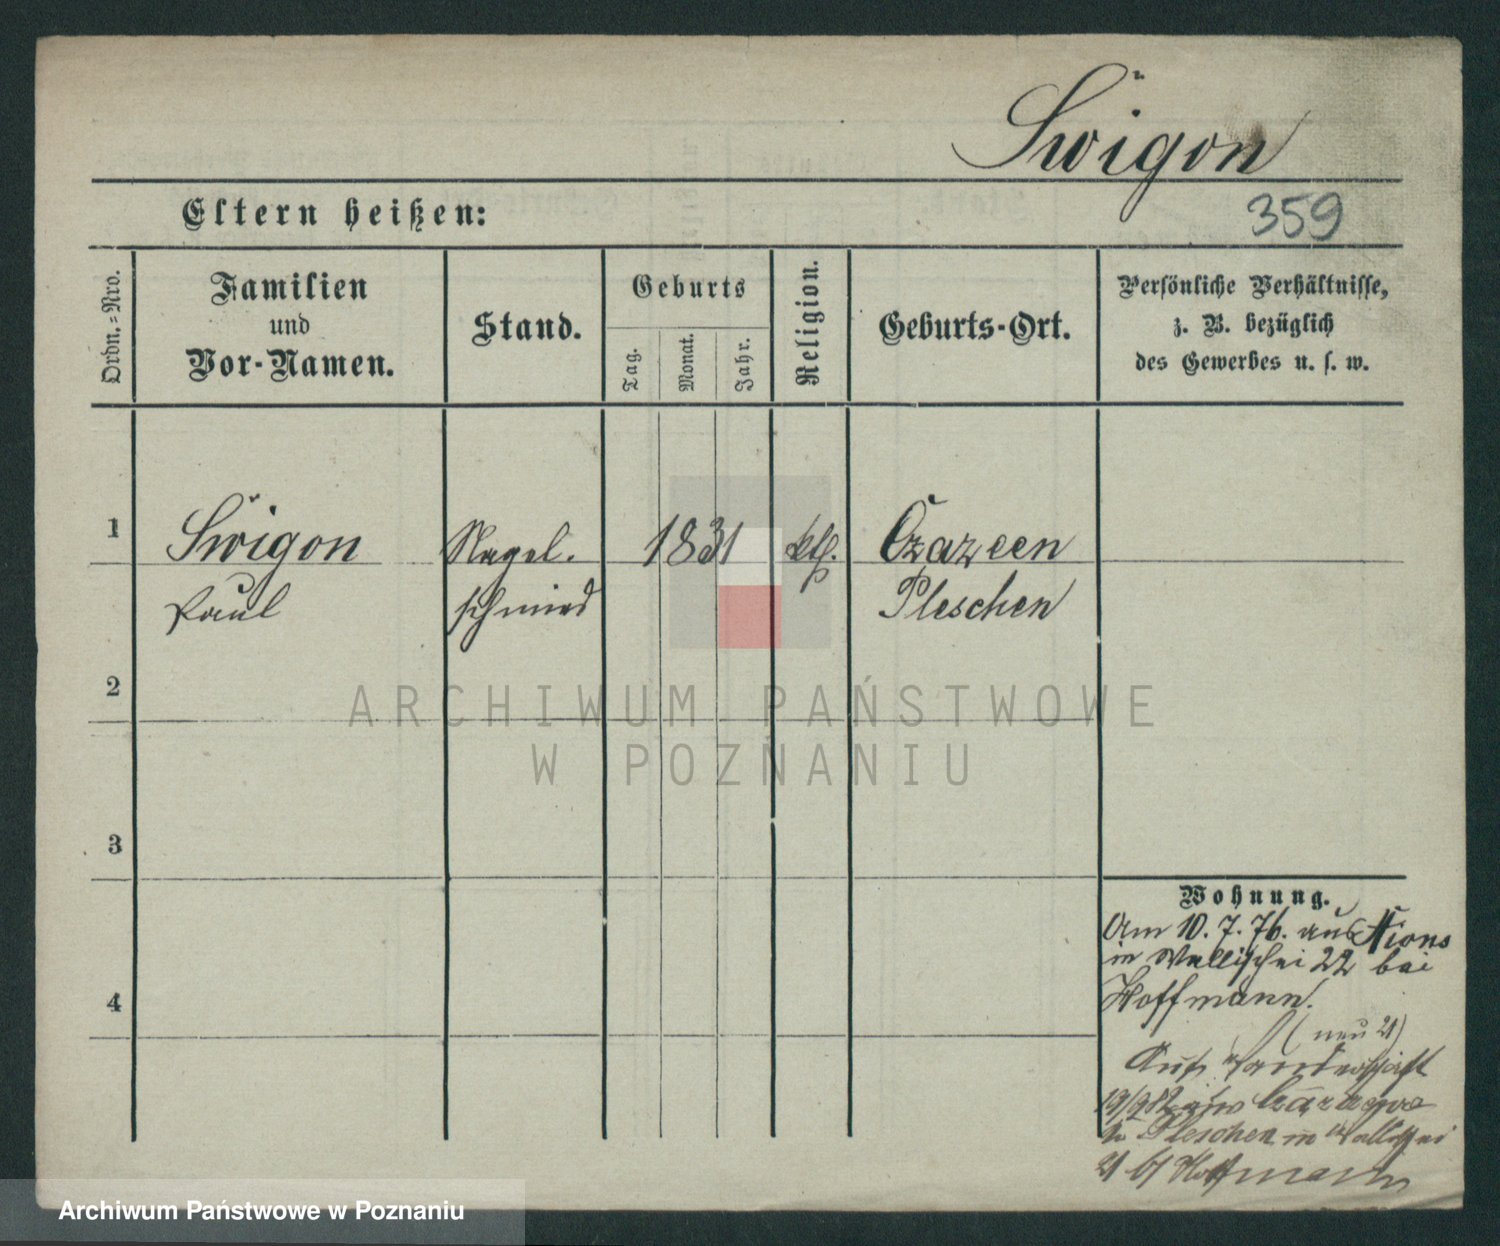 Swigon
359
Eltern heißen:
Ordn.=Nro.
Familien
und
Vor-Namen.
Stand.
Geburts
Tag.
Monat.
Jahr.
Religion.
Geburts-Ort.
Persönliche Verhältnisse,
z. B. bezüglich
des Gewerbes u. s. w.
1
Swigon
Paul
Nagel-
schmied
1831
kth.
Czazeen
Pleschen
2
3
4
Wohnung.
Am 10. 7. 76. aus Xions
in Wallischei 22 bei
Hoffmann.
(neu 21)
Auf Wanderschaft
19/9 82 aus
Pleschen in Wallischei
21 b/ Hoffmann
ARCHIWUM PAŃSTWOWE
W POZNANIU
Archiwum Państwowe w Poznaniu